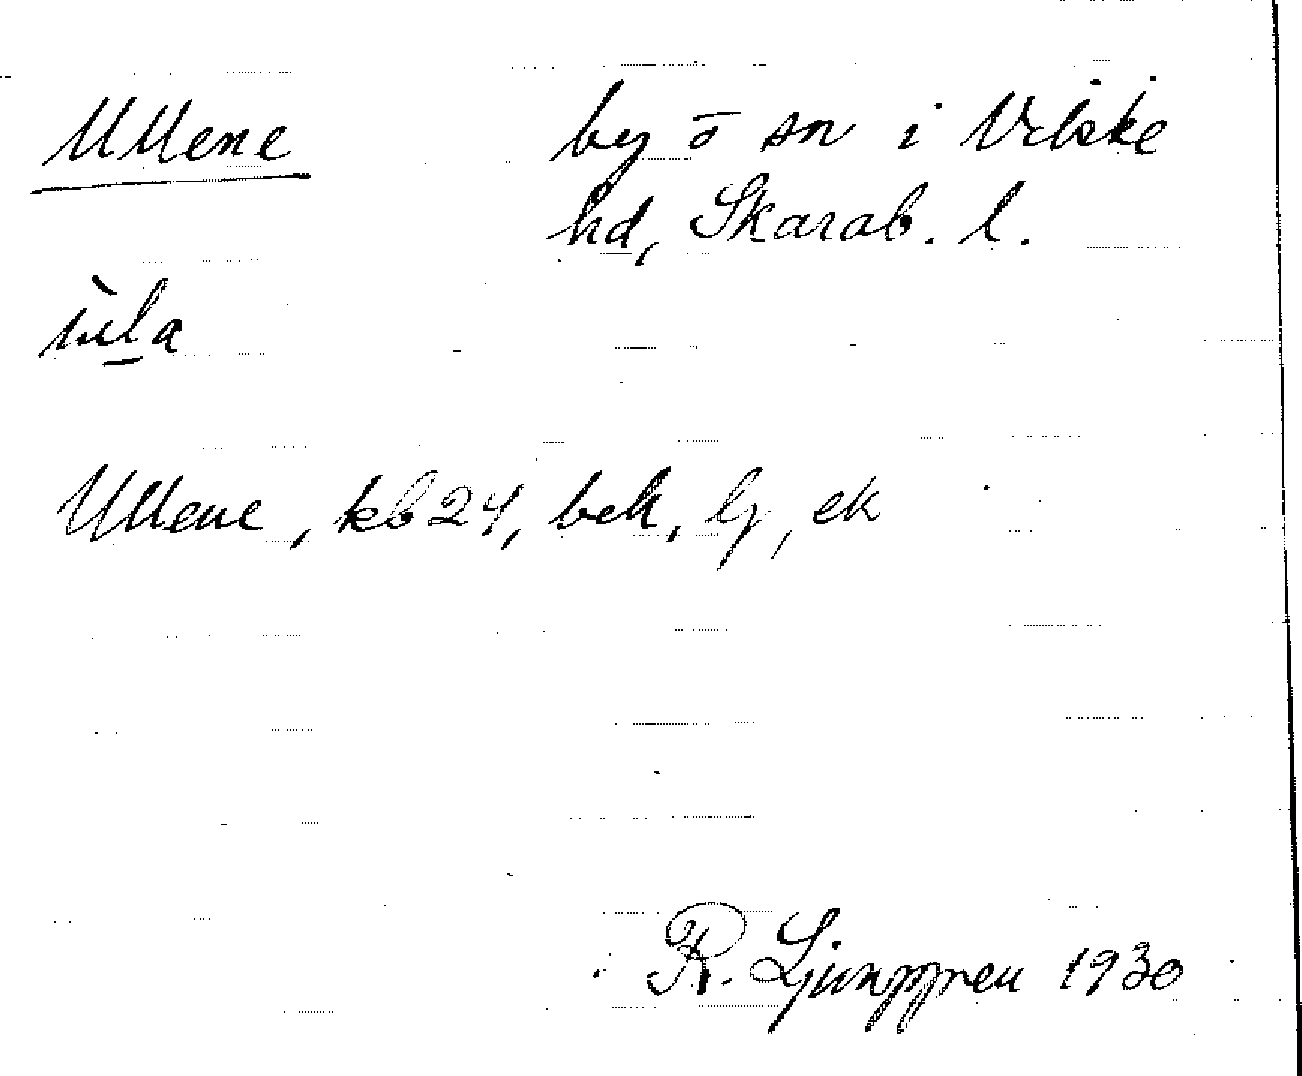 Ullene by o sn i Vilske
hd, Skarab. l.
ùl̲a
Ullene, kb 24, bek, lj, ek
R. Ljunggren 1930